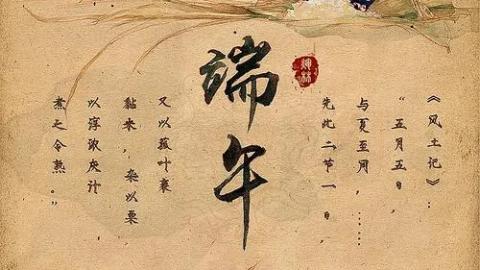 《风土记》：
“五月五日，
与夏至同，……
先此二节一日，
端午
又以菰叶裹
黏米，杂以粟
以淳浓灰汁
煮之令熟。”